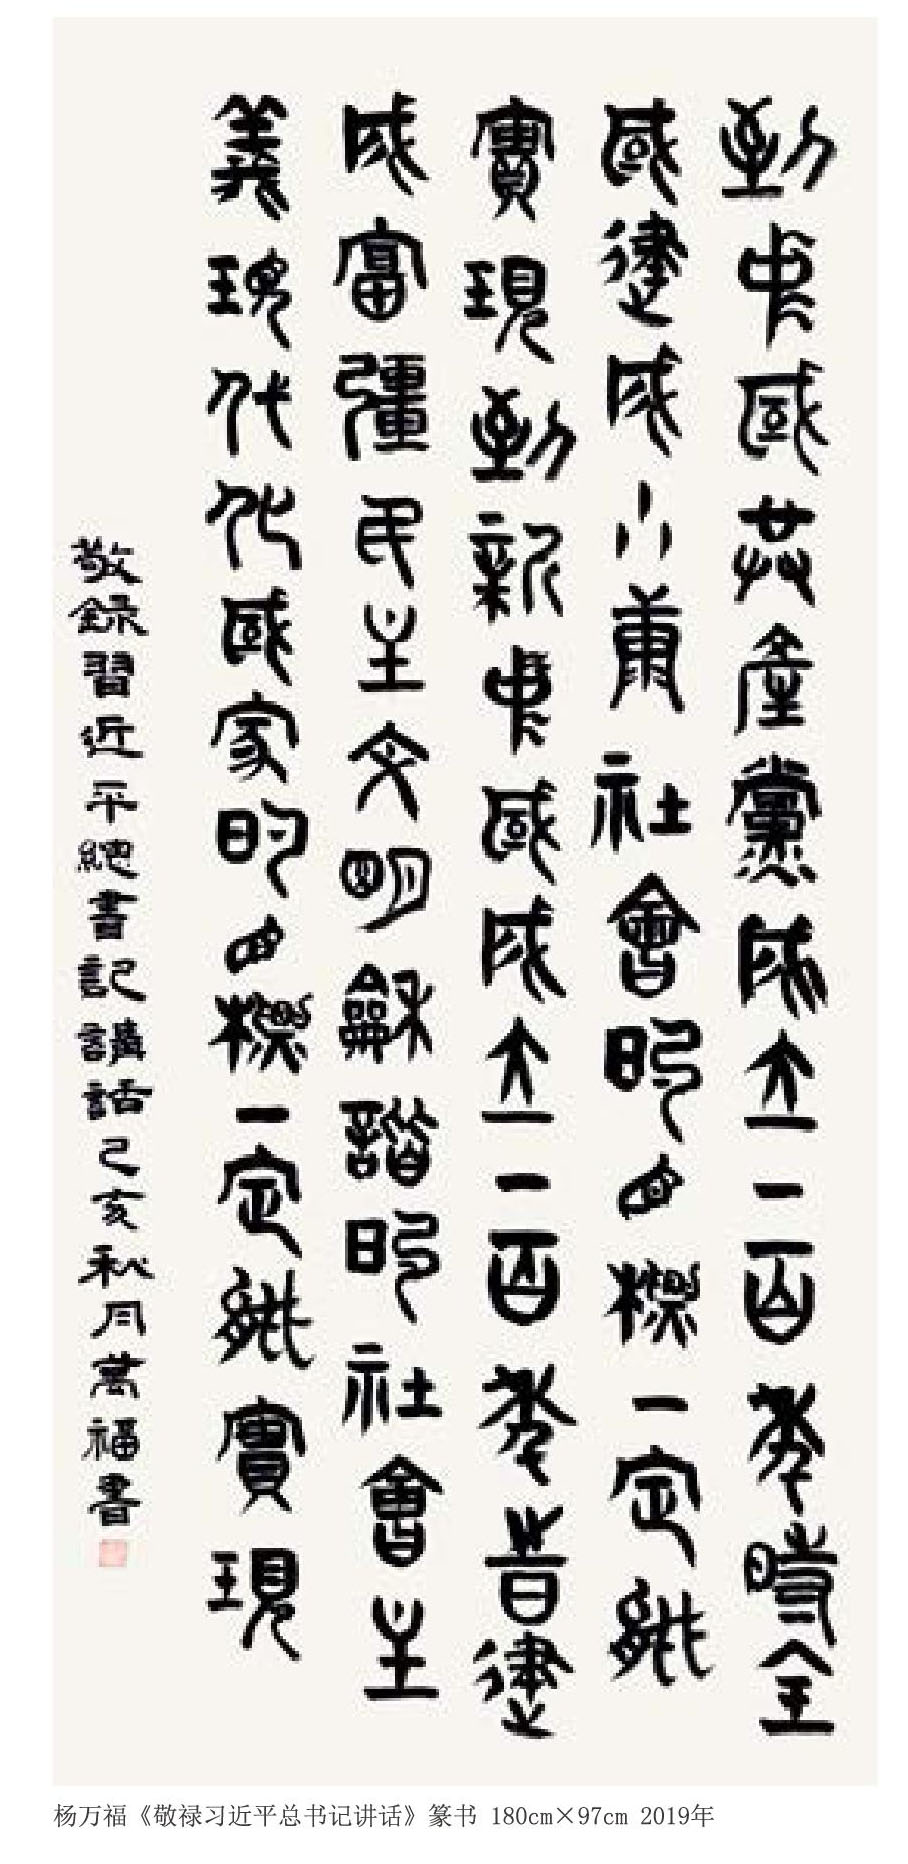 到中國共產黨成立一百年時全
國建成小康社會的目標一定能
實現到新中國成立一百年時建
成富強民主文明龢諧的社會主
義現代化國家的目標一定能實現
敬録習近平總書記講話己亥秋月萬福書
杨万福《敬禄习近平总书记讲话》篆书 180cm×97cm 2019年